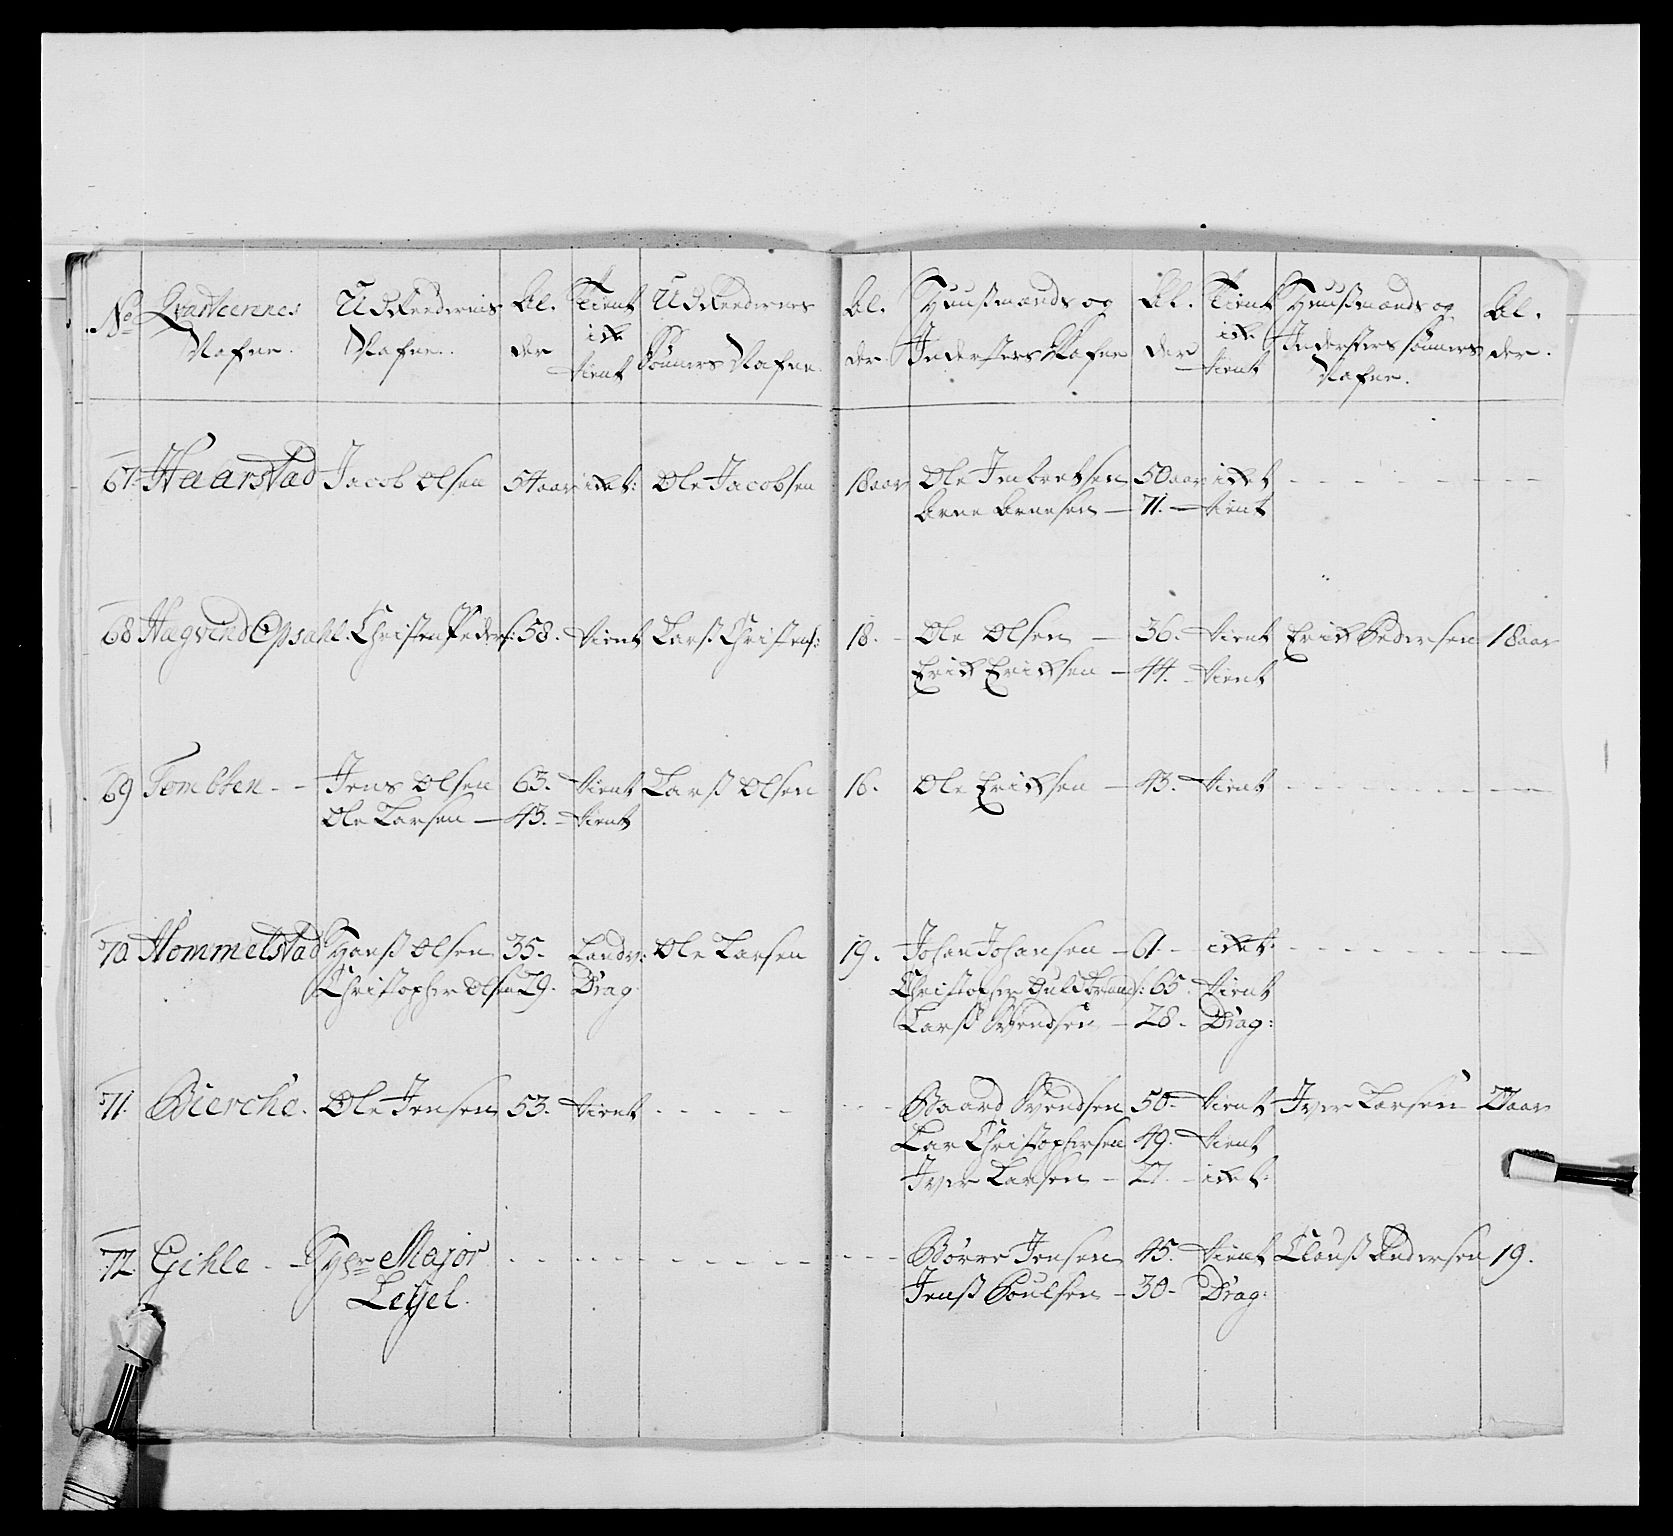 No Qvarteerenes Nafne. Udreedernis Nafne. Al. der Tient ikke tient Udreedernes Sønners Nafne. Al. der. Huusmænds og Indersters Nafne Al. der Tient ikke tient Huusmænds og Indersters sønners Nafne. Al. der.
67. Haarstad Jacob Olsen 54 aar ikket: Ole Jacobsen 18 aar Ole Imbretsen 50 aar ikket - - - - - - - -
Arne Arnesen — 71. — tient
68 Hagvend Opsahl. Christen Peders: 58. tient Larss Christens: 18. - Ole Olsen — 36. tient Erick Pedersen 18 aar
Erick Ericksen — 44. — tient
69 Tombten - - Jens Olsen 63. tient Larss Olsen 16. Ole Ericksen — 43. tient - - - - - - - -
Ole Larsen — 43. — tient
70 Hommelstad Hanss Olsen 35. Landv: Ole Larsen 19. Johan Johansen — 61 - ikket: - - - - - - - -
Christopher Olsen 29. Drag: Christopher Guldbrands: 65. tient
Larss Svendsen — 28. Drag:
71. Bierche. Ole Jensen 53. tient - - - - - - - - Baard Svendsen 50. tient Iver Larsen 27 aar
Lar Christophersen 49. tient
Iver Larsen — 27. — ikket:
72. Gihle - - Hr Major - - - - - - - - - - - - Børre Jensen 45. tient Clauss Andersen 19.
Leyel. Jenss Poulsen — 30 - Drag: